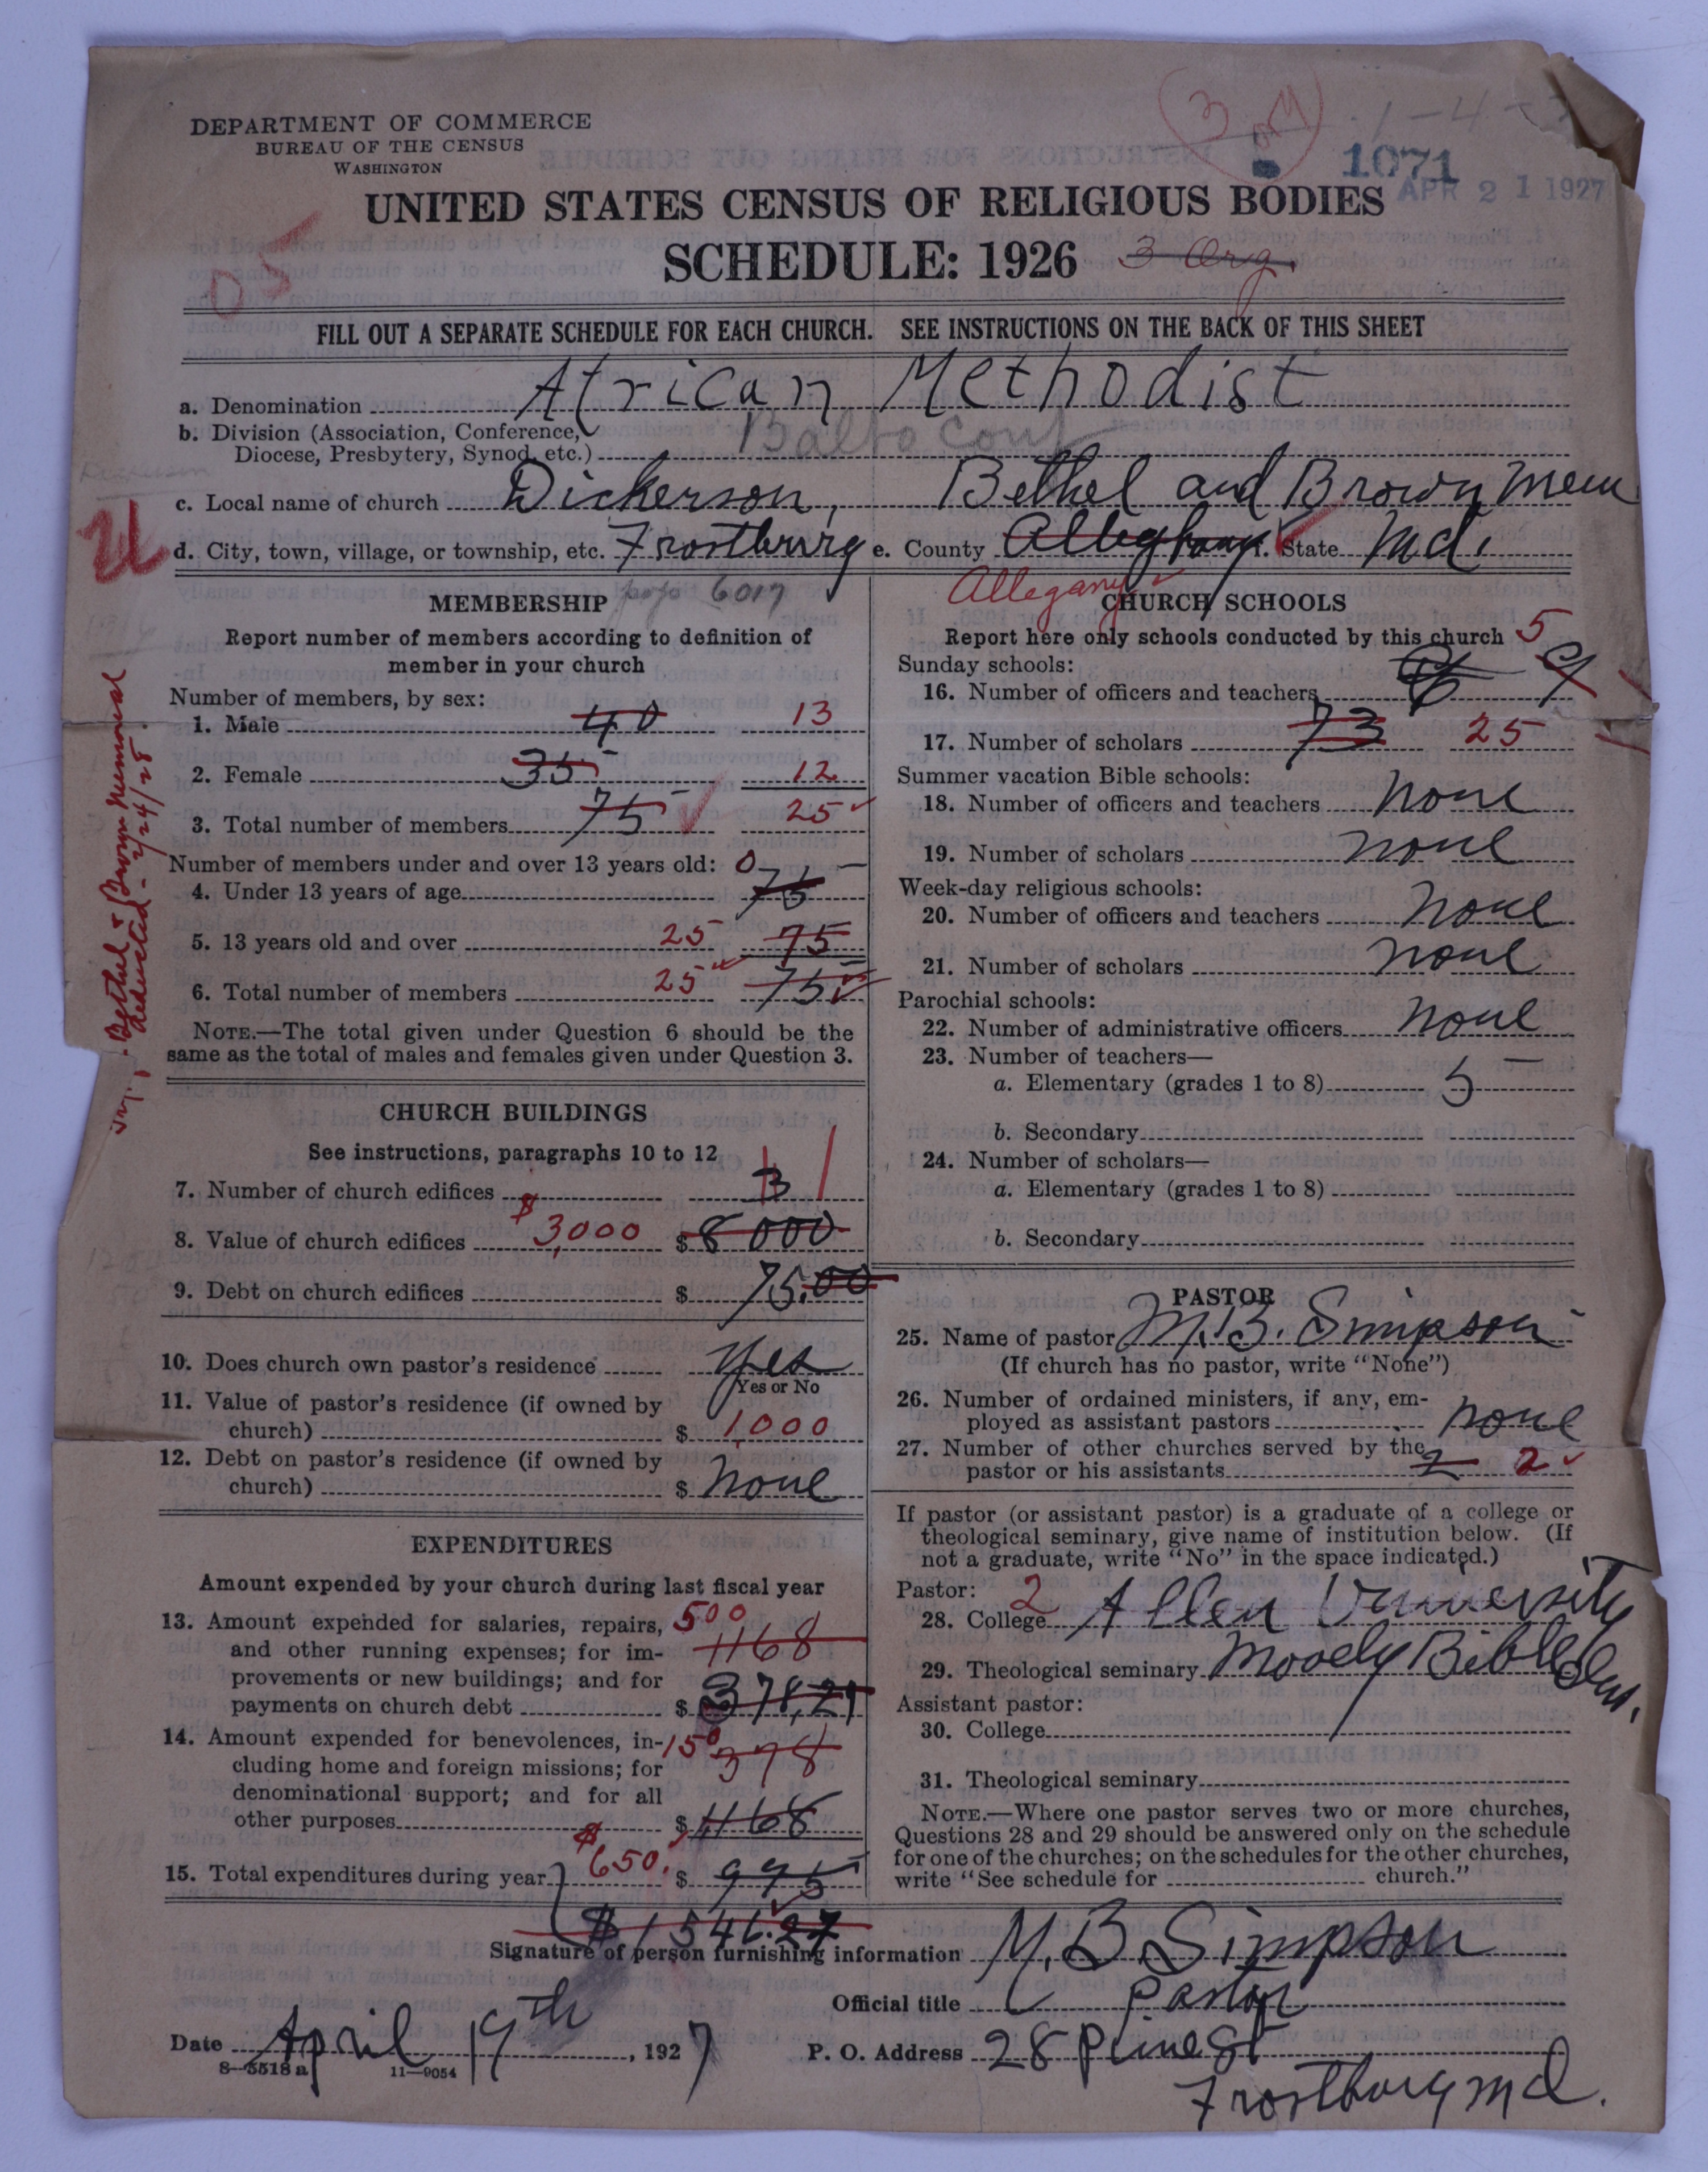 DEPARTMENT OF COMMERCE
BUREAU OF THE CENSUS
WASHINGTON
1071
APR 21 1927
UNITED STATES CENSUS OF RELIGIOUS BODIES
SCHEDULE: 1926 3 Org.
05
FILL OUT A SEPARATE SCHEDULE FOR EACH CHURCH. SEE INSTRUCTIONS ON THE BACK OF THIS SHEET
a. Denomination African Methodist
b. Division (Association, Conference,
Diocese, Presbytery, Synod, etc.) Balto Conf
c. Local name of church Dickerson, Bethel and Brown Mem
d. City, town, village, or township, etc. Frostburg e. County Alleghany f. State Md.
Allegany
MEMBERSHIP
pop 6017
Report number of members according to definition of
member in your church
Number of members, by sex:
1. Male 40 13
2. Female 35 12
3. Total number of members 75 25
Number of members under and over 13 years old:
4. Under 13 years of age 0 75
5. 13 years old and over 25 75
6. Total number of members 25 75
NOTE.—The total given under Question 6 should be the
same as the total of males and females given under Question 3.
Bethel & Brown Memorial
deducted - 2/24/28
CHURCH BUILDINGS
See instructions, paragraphs 10 to 12
7. Number of church edifices 3 1
8. Value of church edifices $3,000 $ 8000
9. Debt on church edifices $ 75.00
10. Does church own pastor's residence Yes
Yes or No
11. Value of pastor's residence (if owned by
church) $ 1,000
12. Debt on pastor's residence (if owned by
church) $ none
EXPENDITURES
Amount expended by your church during last fiscal year
13. Amount expended for salaries, repairs, 500
and other running expenses; for im- 1168
provements or new buildings; and for
payments on church debt $ 378,27
14. Amount expended for benevolences, in- 150
cluding home and foreign missions; for 378
denominational support; and for all
other purposes $ 1168
15. Total expenditures during year $650. $ 995
$1546.27
CHURCH SCHOOLS
Report here only schools conducted by this church
Sunday schools: 5
16. Number of officers and teachers 9
17. Number of scholars 73 25
Summer vacation Bible schools:
18. Number of officers and teachers none
19. Number of scholars none
Week-day religious schools:
20. Number of officers and teachers none
21. Number of scholars none
Parochial schools:
22. Number of administrative officers none
23. Number of teachers—
a. Elementary (grades 1 to 8) 5
b. Secondary
24. Number of scholars—
a. Elementary (grades 1 to 8)
b. Secondary
PASTOR
25. Name of pastor M. B. Simpson
(If church has no pastor, write "None")
26. Number of ordained ministers, if any, em-
ployed as assistant pastors none
27. Number of other churches served by the
pastor or his assistants 2 2
If pastor (or assistant pastor) is a graduate of a college or
theological seminary, give name of institution below. (If
not a graduate, write "No" in the space indicated.)
Pastor: 2
28. College Allen University
29. Theological seminary Moody Bible Ins.
Assistant pastor:
30. College
31. Theological seminary
NOTE.—Where one pastor serves two or more churches,
Questions 28 and 29 should be answered only on the schedule
for one of the churches; on the schedules for the other churches,
write "See schedule for church."
Signature of person furnishing information M. B. Simpson
Official title Pastor
Date April 19th, 1927 P. O. Address 28 Pine St
Frostburg Md.
8—5518 a 11—9054